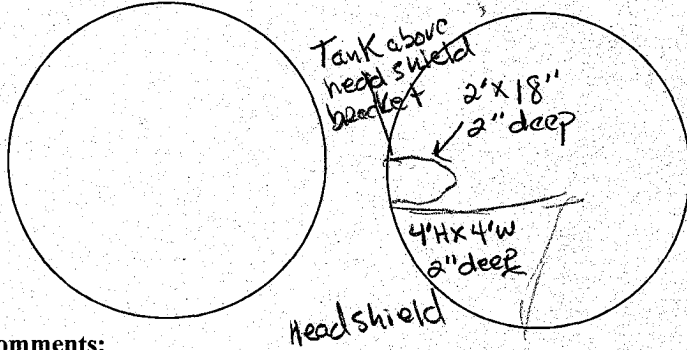 Tank above
head shield
bracket
2'X 18"
2" deep
4'HX 4'W
2" deep
Headshield
omments: